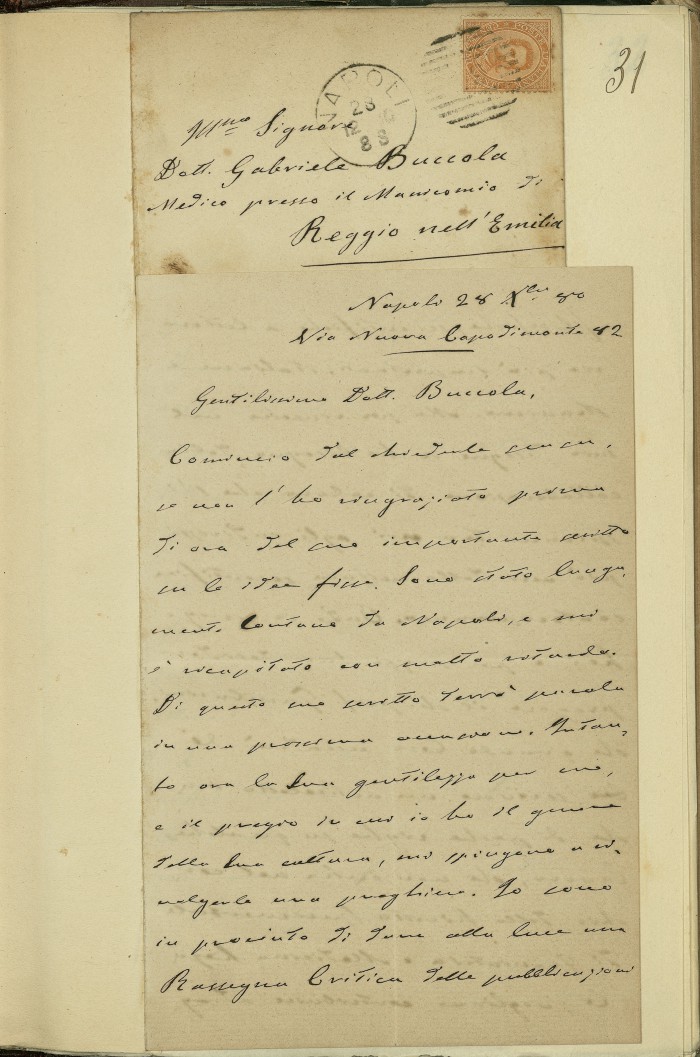 31
NAPOLI
28
Illmo Signore
Dott. Gabriele Buccola
Medico presso il Manicomio di
Reggio nell'Emilia
Napoli 28 Xbre 80
Via Nuova Capodimonte 82
Gentilissimo Dott. Buccola,
Comincio dal chiederle scusa,
se non l'ho ringraziato prima
di ora del suo importante scritto
su le idee fisse. Sono stato lunga-
mente lontano da Napoli, e mi
è ricapitato con molto ritardo.
Di questo suo scritto terrò parola
in una prossima occasione. Intan-
to ora la Sua gentilezza per me,
e il pregio in cui io ho il genere
della Sua cultura, mi spingono a ri-
volgerle una preghiera. Io sono
in procinto di dare alla luce una
Rassegna Critica delle pubblicazioni